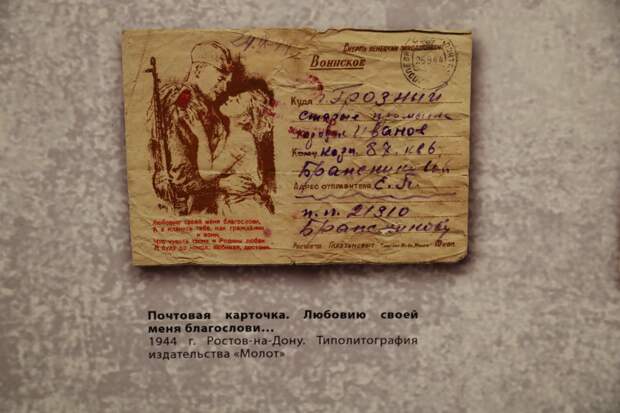 Смерть немецким оккупантам!
Воинское
Куда г. Грозный
Старые промысла
Иванов
Кому корп. 87. кв,
Адрес отправителя Е. Я.
п. п. 21910
25 9 44
Любовию своей меня благослови,
И я клянусь тебе, как гражданин
и воин,
Что чувств твоих и Родины любви
Я буду до конца, любимая, достоин.
Почтовая карточка. Любовию своей
меня благослови...
1944 г. Ростов-на-Дону. Типолитография
издательства «Молот»